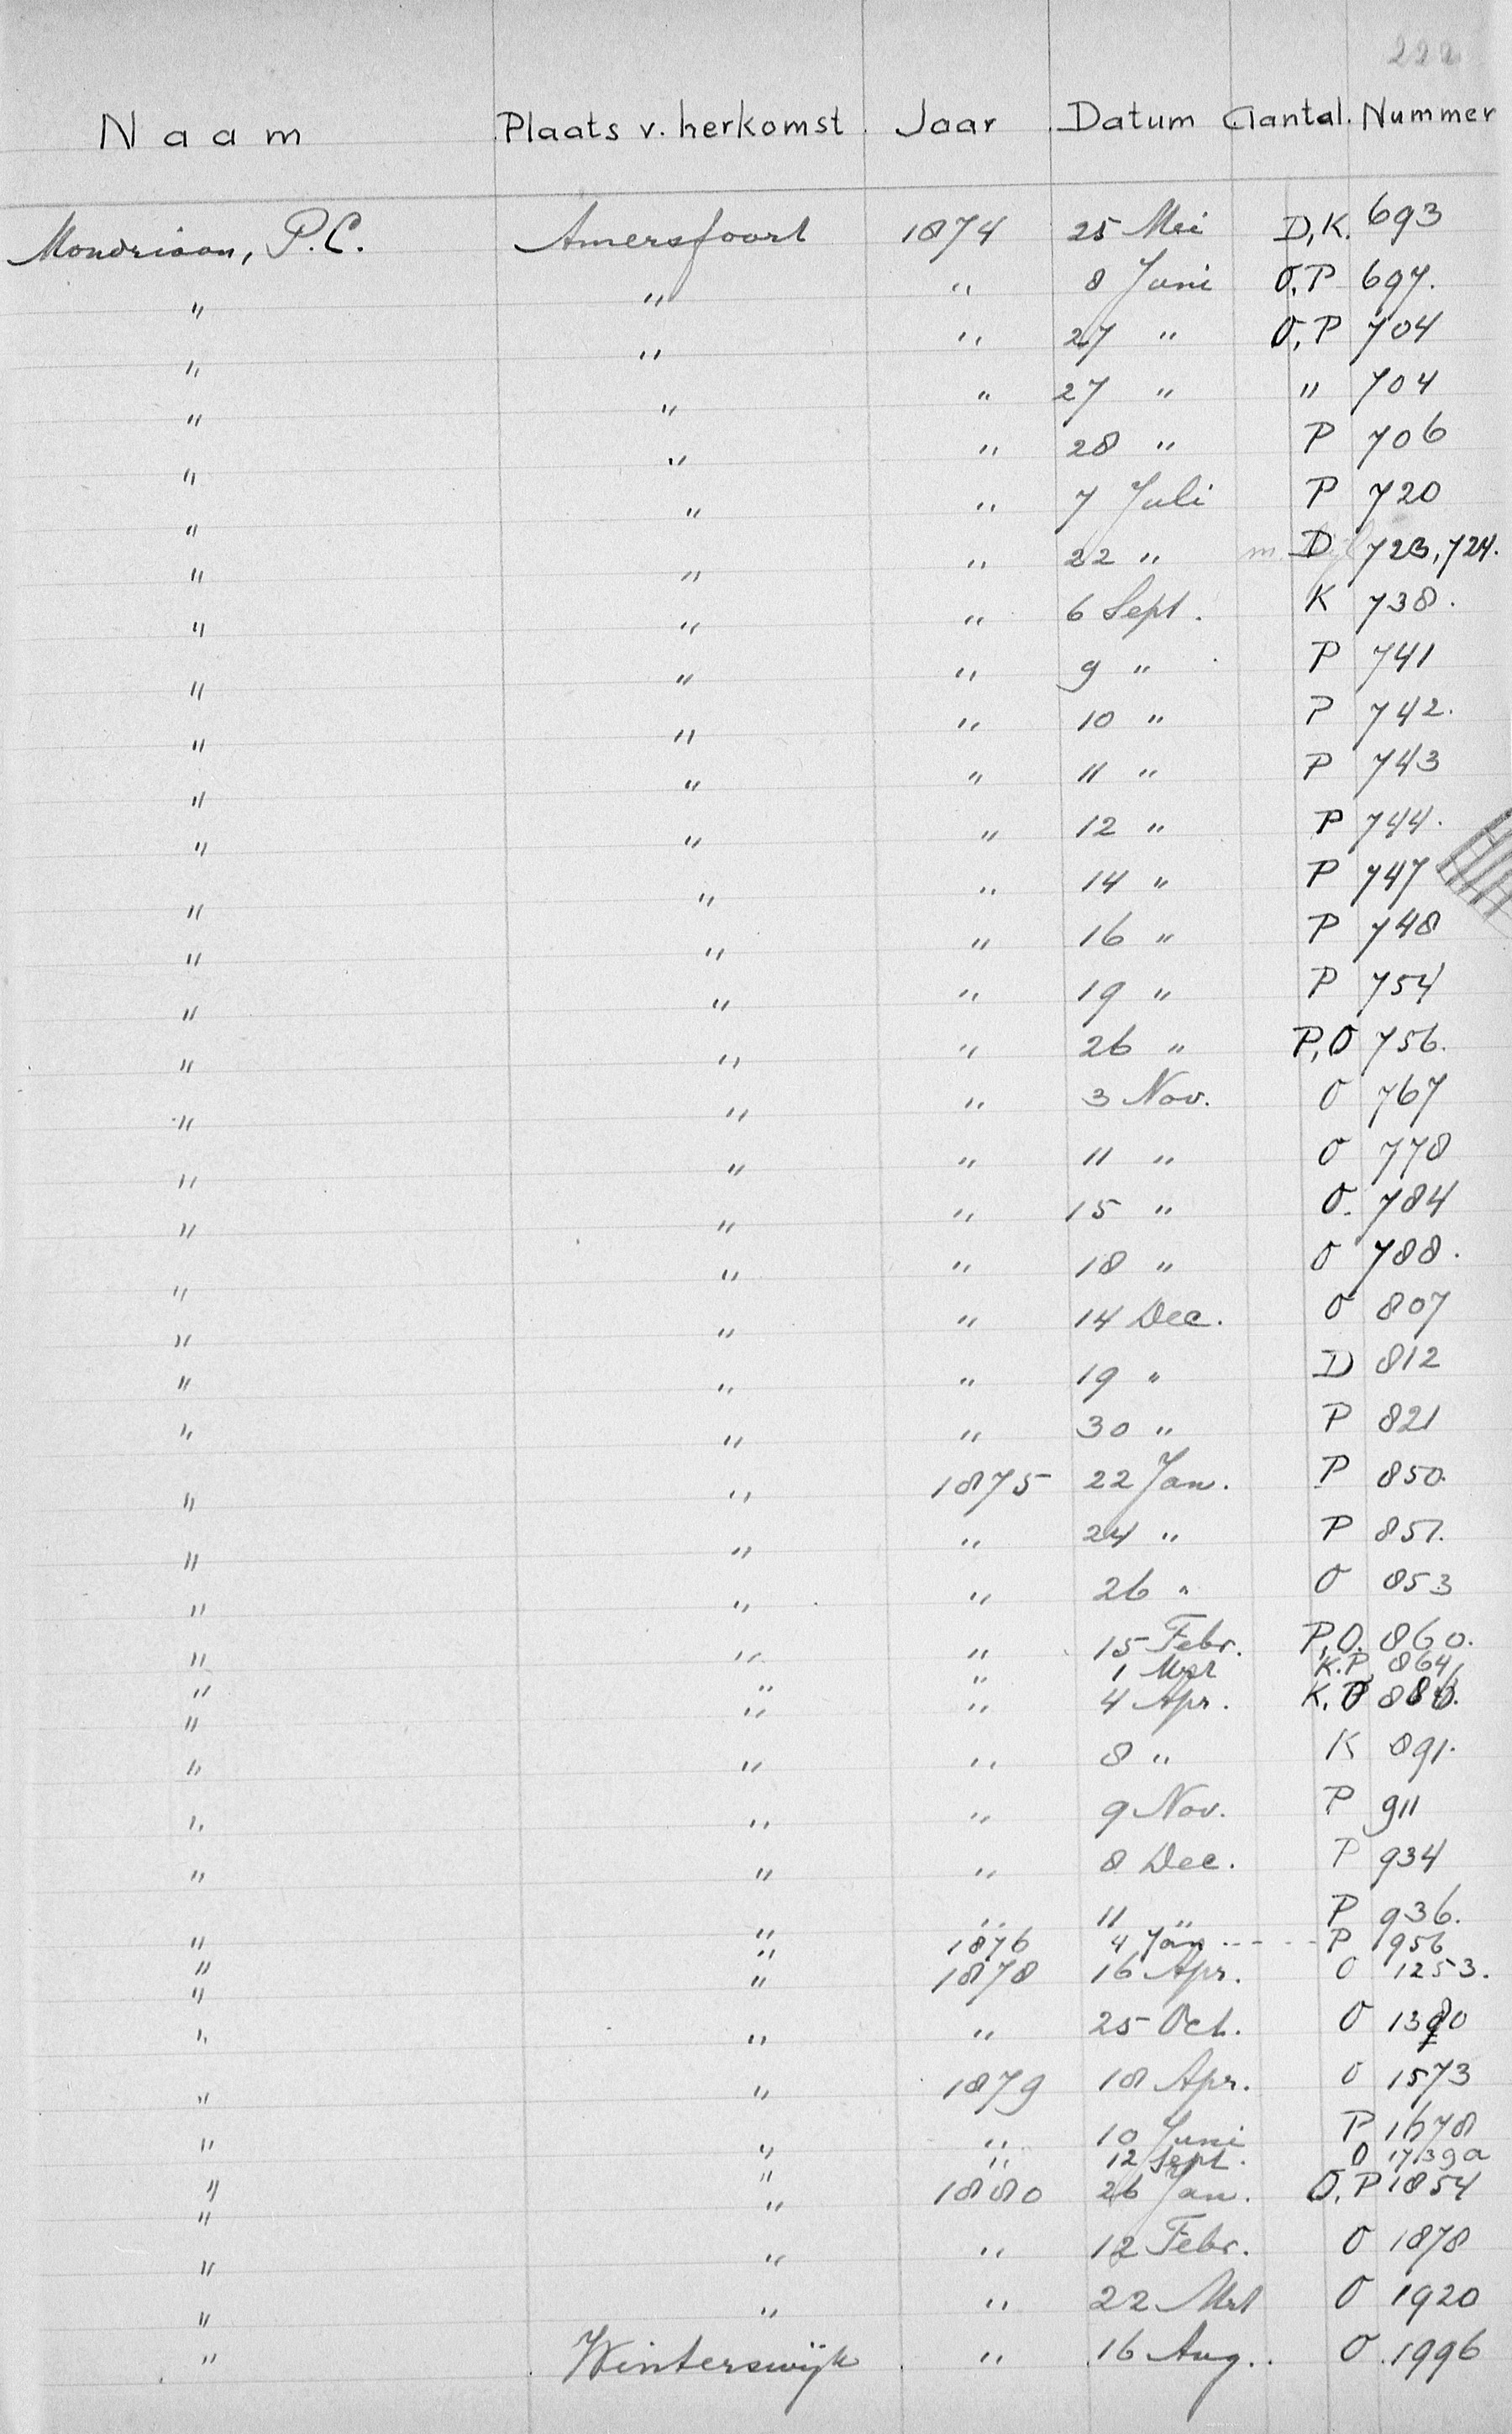 222
Naam Plaats v. herkomst Jaar Datum Aantal. Nummer
Mondriaan, P.C. Amersfoort 1874 25 Mei D,K. 693
" " " 8 Juni O,P 697.
" " " 27 " O,P 704
" " " 27 " " 704
" " " 28 " P 706
" " " 7 Juli P 720
" " " 22 " m. D 723,724.
" " " 6 Sept. K 738.
" " " 9 " P 741
" " " 10 " P 742.
" " " 11 " P 743
" " " 12 " P 744.
" " " 14 " P 747
" " " 16 " P 748
" " " 19 " P 754
" " " 26 " P,O 756.
" " " 3 Nov. O 767
" " " 11 " O 778
" " " 15 " O. 784
" " " 18 " O 788.
" " " 14 Dec. O 807
" " " 19 " D 812
" " " 30 " P 821
" " 1875 22 Jan. P 850.
" " " 24 " P 851.
" " " 26 " O 853
" " " 15 Febr. P,O. 860.
" " " 1 Mrt K.P. 864
" " " 4 Apr. K.
" " " 8 " K 891.
" " " 9 Nov. P 911
" " " 8 Dec. P 934
" " " 11 " P 936.
" " 1876 4 Jan ---- P 956
" " 1878 16 Apr. O 1253.
" " " 25 Oct. O
" " 1879 18 Apr. O 1573
" " " 10 Juni P 1678
" " " 12 Sept. O 1739a
" " 1880 26 Jan. O,P 1854
" " " 12 Febr. O 1878
" " " 22 Mrt O 1920
" Winterswijk " 16 Aug. O 1996